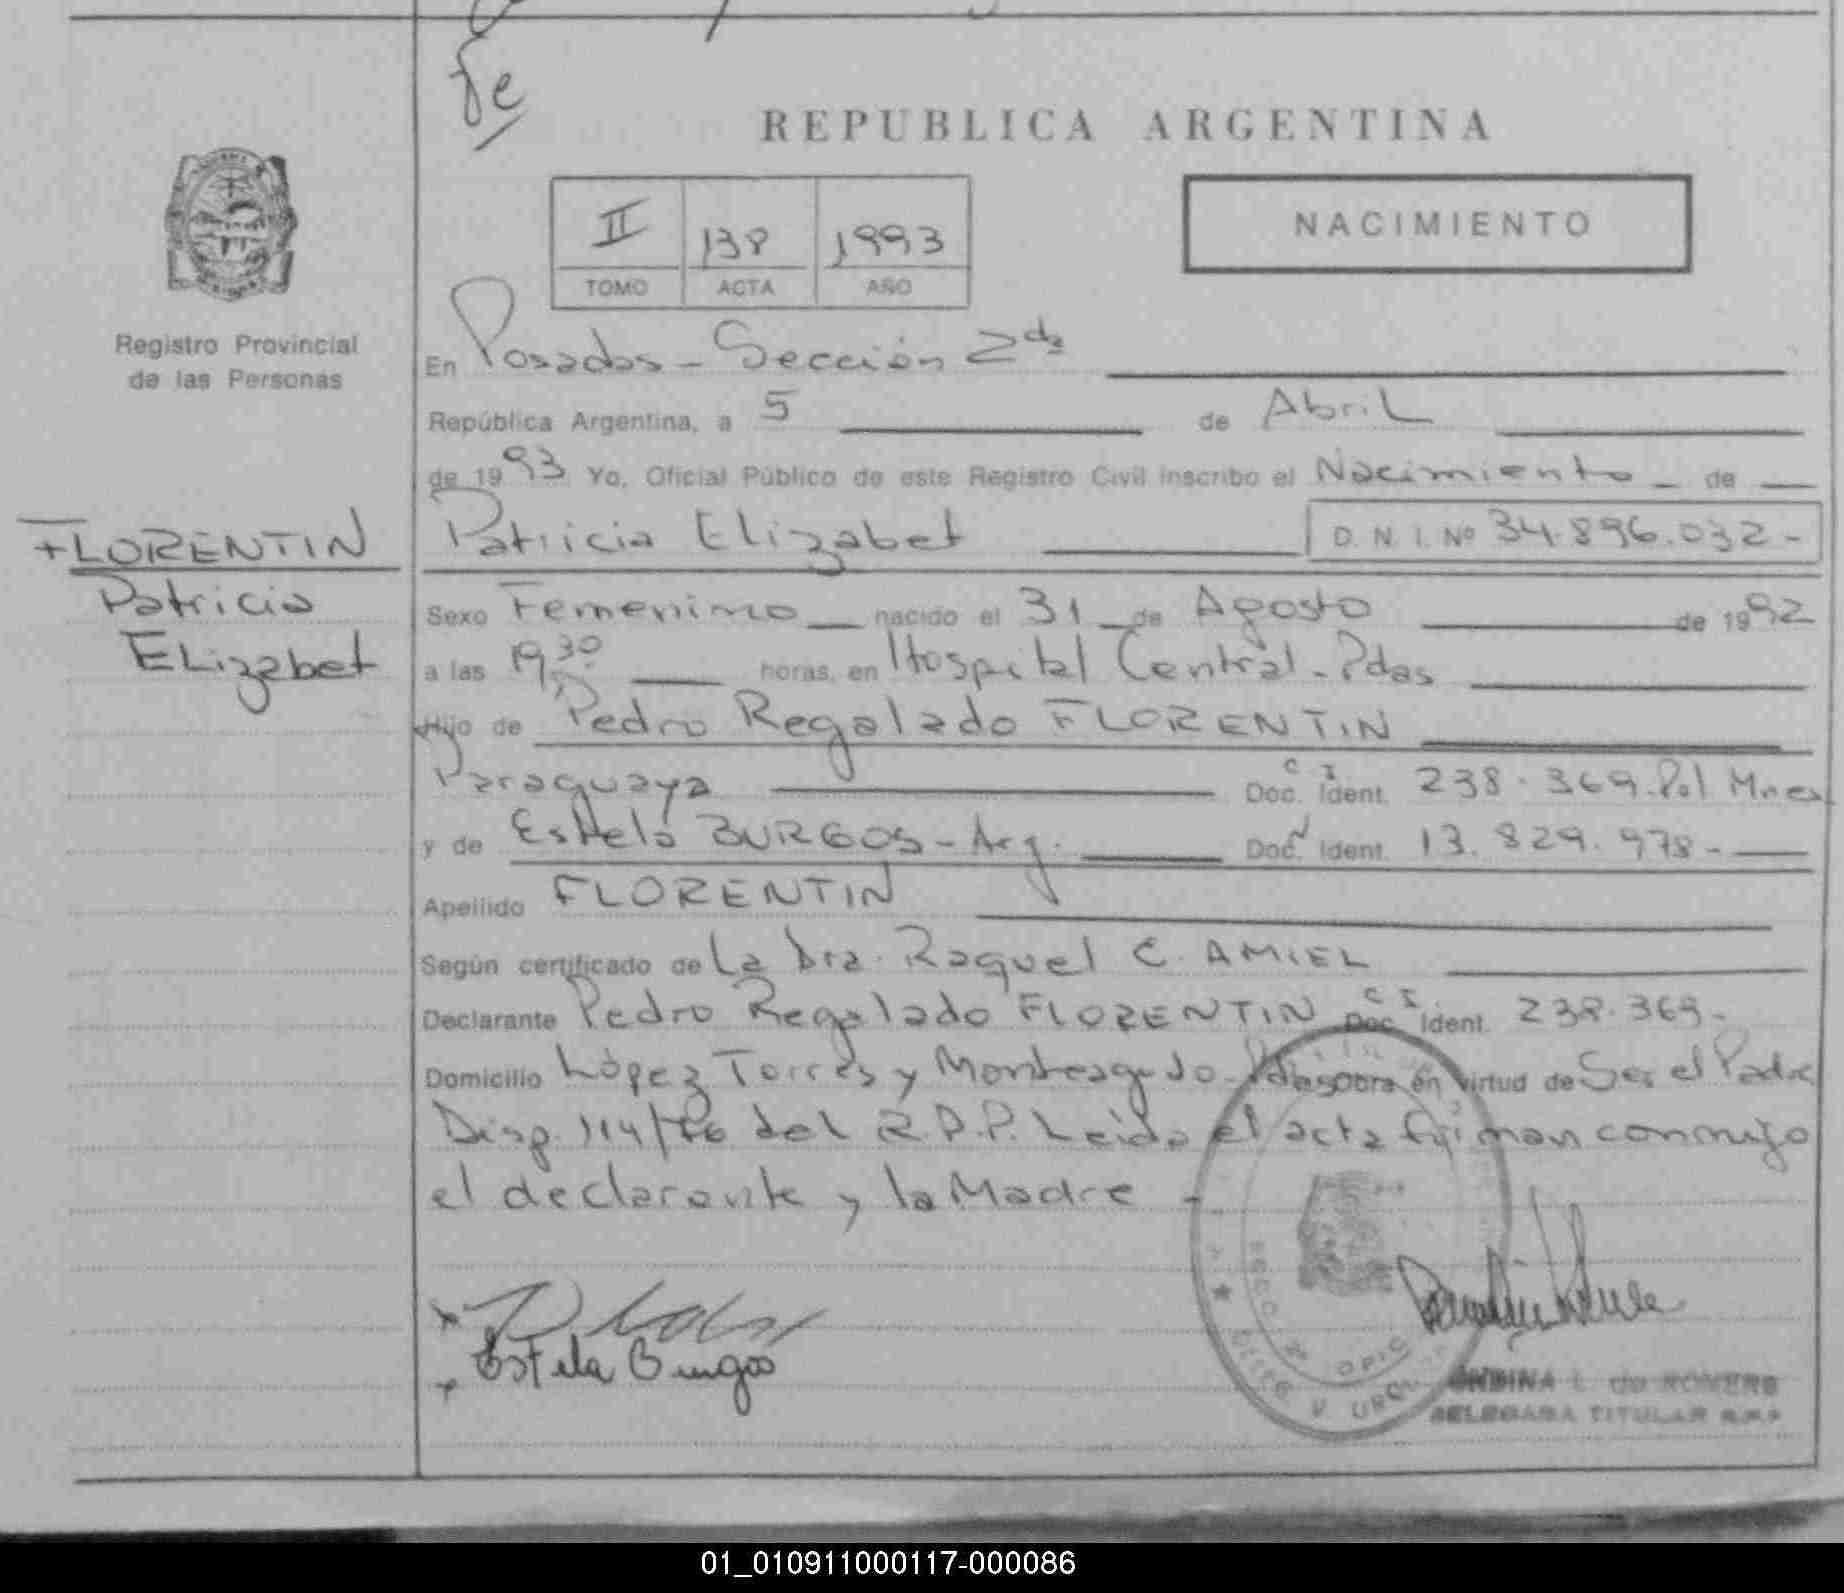 fe
REPUBLICA ARGENTINA
II 138 1993
TOMO ACTA AÑO
NACIMIENTO
Registro Provincial
de las Personas
En Posadas - Sección 2da
República Argentina, a 5 de Abril
de 1993 Yo, Oficial Público de este Registro Civil inscribo el Nacimiento - de
FLORENTIN
Patricia
Elizabet
Patricia Elizabet D. N. I. Nº 34.896.032-
Sexo Femenino nacido el 31 de Agosto de 1992
a las 19,30 horas, en Hospital Central - Pdas
Hijo de Pedro Regalado FLORENTIN
Paraguaya C I Doc. Ident. 238.369. Pol Mnes
y de Estela BURGOS - Arg. Doc. Ident. 13.829.978-
Apellido FLORENTIN
Según certificado de La Dra. Raquel C. AMIEL
Declarante Pedro Regalado FLORENTIN C I Doc. Ident. 238.369-
Domicilio López Torres y Monteagudo - Pdas obra en virtud de Ser el Padre
Disp. 114/86 del R.P.P. Leída el acta firman conmigo
el declarante y la Madre -
Estela Burgos
L. de ROMERO
DELEGADA TITULAR R.P.P
01_010911000117-000086